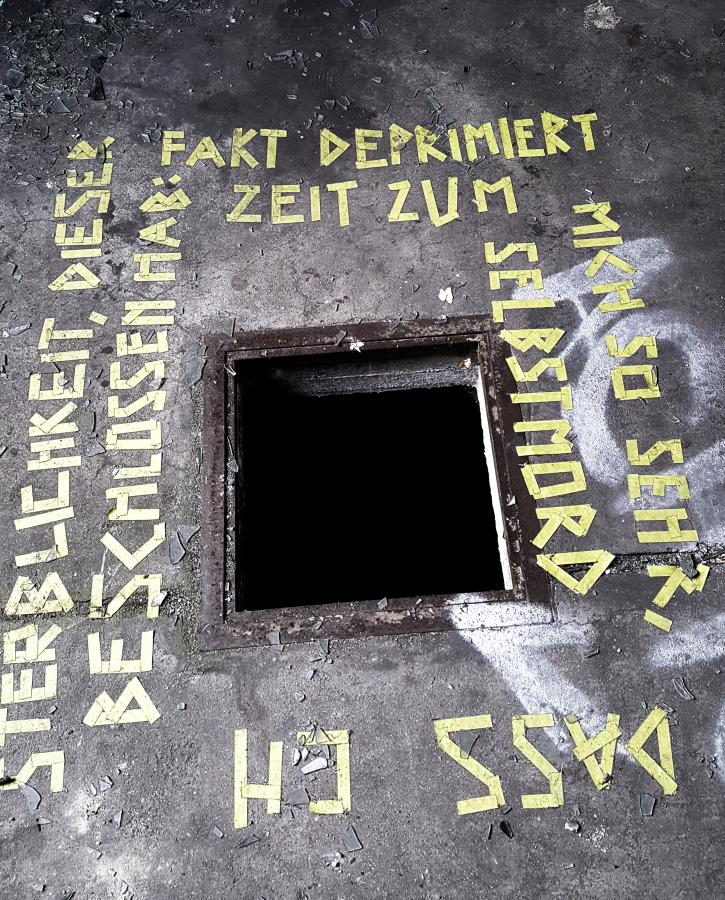 STERBLICHKEIT, DIESER
FAKT DEPRIMIERT
MICH SO SEHR,
DASS CH
BESCHLOSSEN HAB:
ZEIT ZUM
SELBSTMORD